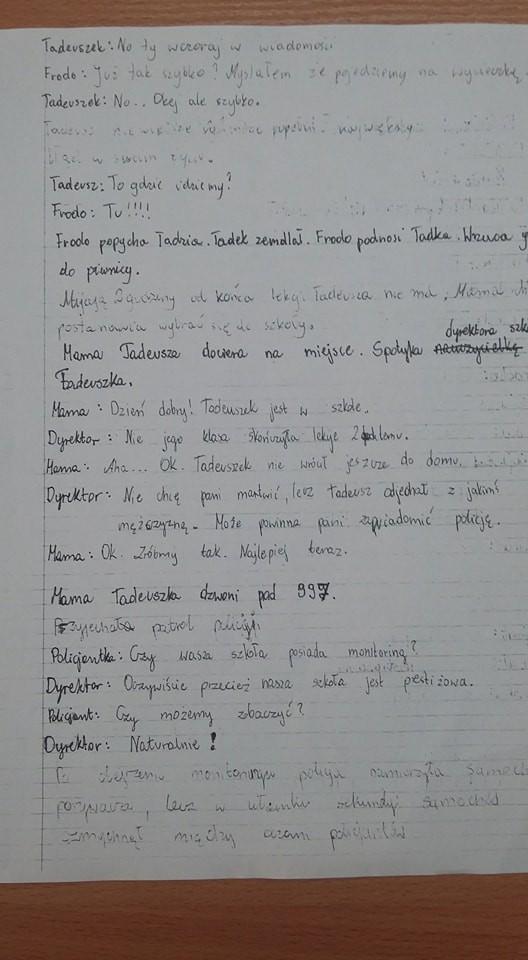 Tadeuszek: No ty wczoraj w wiadomości
Frodo: Już tak szybko? Myślałem że pojedziemy na wycieczkę.
Tadeuszek: No.. Okej ale szybko.
Tadeusz nie popełnił największy
błąd w swoim życiu.
Tadeusz: To gdzie idziemy?
Frodo: Tu!!!!
Frodo popycha Tadzia. Tadek zemdlał. Frodo podnosi Tadka. Wrzuca
do piwnicy.
Mijają 2 godziny od końca lekcji Tadeusza nie ma. Mama
postanawia wybrać się do szkoły.
dyrektora
Mama Tadeusza dociera na miejsce. Spotyka nauczycielkę
Tadeuszka.
Mama: Dzień dobry! Tadeuszek jest w szkole.
Dyrektor: Nie jego klasa skończyła lekcje 2h temu.
Mama: Aha... Ok. Tadeuszek nie wrócił jeszcze do domu.
Dyrektor: Nie chcę pani martwić, lecz Tadeusz odjechał z jakimś
mężczyzną. Może powinna pani zawiadomić policję.
Mama: Ok. Zróbmy tak. Najlepiej teraz.
Mama Tadeuszka dzwoni pod 997.
Przyjechała patrol policji
Policjantka: Czy wasza szkoła posiada monitoring?
Dyrektor: Oczywiście przecież nasza szkoła jest prestiżowa.
Policjant: Czy możemy zobaczyć?
Dyrektor: Naturalnie!
Po obejrzeniu monitoringu policja namierzyła
porywacza, lecz w ułamku sekundy samochód
czmychnął między oczami policjantów